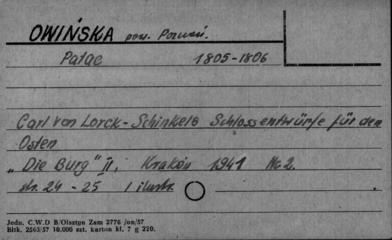 OWIŃSKA pow. Poznań.
Pałac 1805-1806
Carl von Lorck - Schinkels Schlossentwürfe für den
Osten
"Die Burg" II, Kraków 1941 Nr 2.
str. 24 - 25 1 ilustr.
Jedn. C.W.D B/Olsztyn Zam 2776 jun/57
Bltk. 2563/57 10.000 szt. karton kl. 7 g 220.